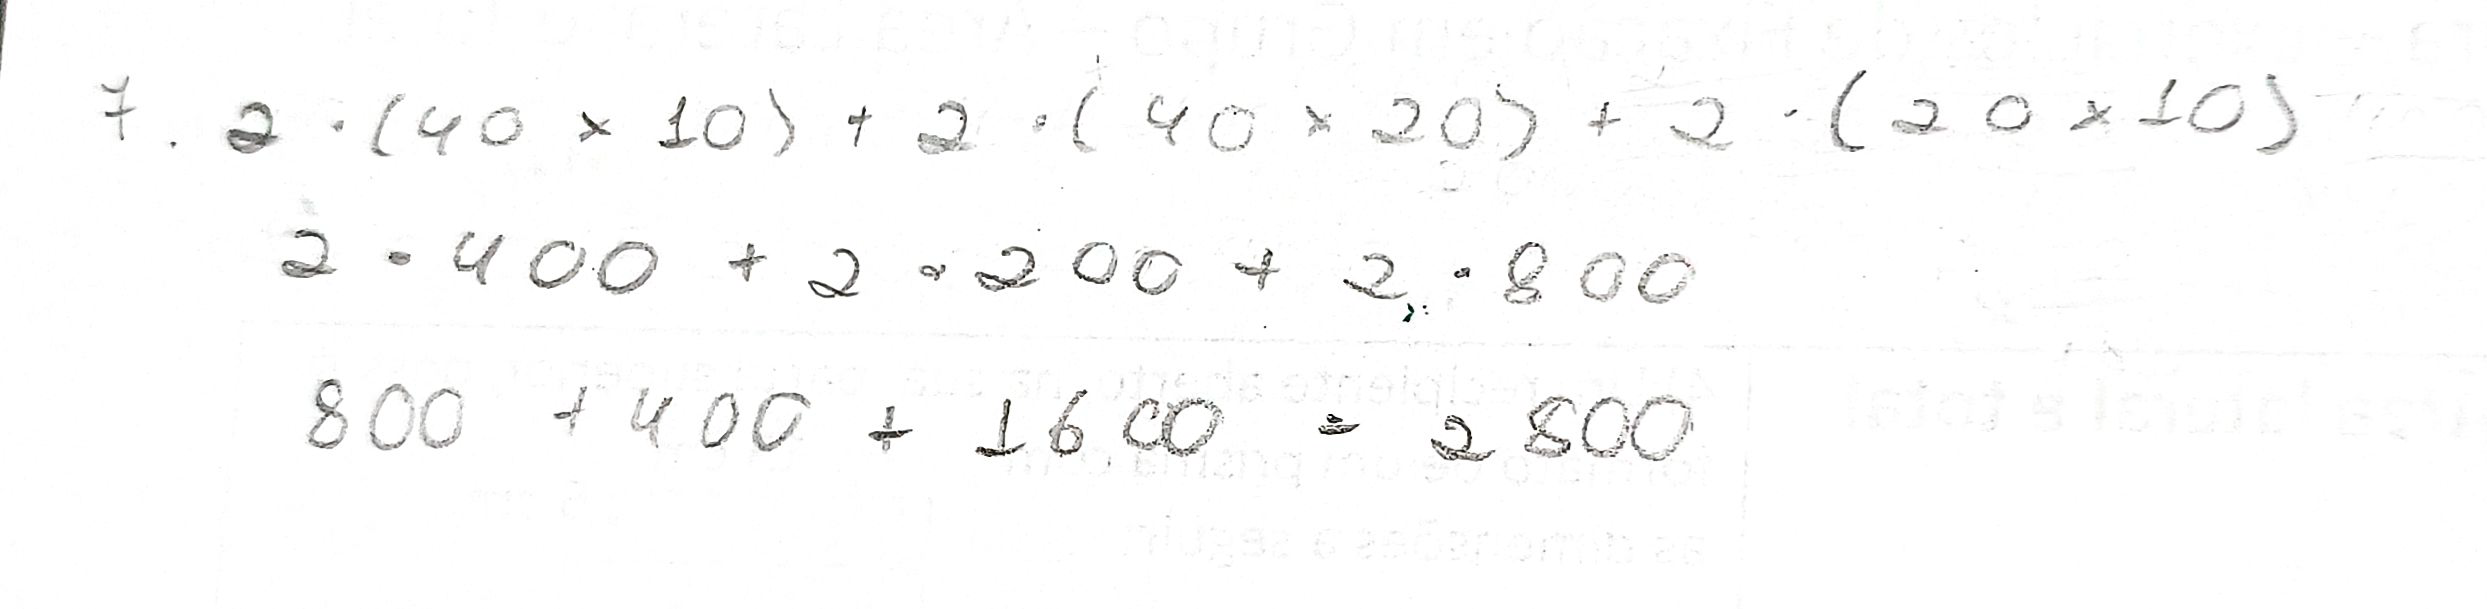 7. 2 · (40 × 10) + 2 · (40 × 20) + 2 · (20 × 10)
2 · 400 + 2 · 200 + 2 · 800
800 + 400 + 1600 = 2800